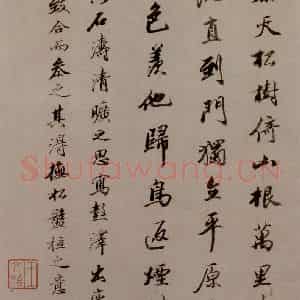 天松樹倚山根萬里
直到門獨立平原
色羨他歸鳥返煙
石濤清曠之思寫彭澤
致合而參之其得樵松盤桓之意
Shufawang.cn